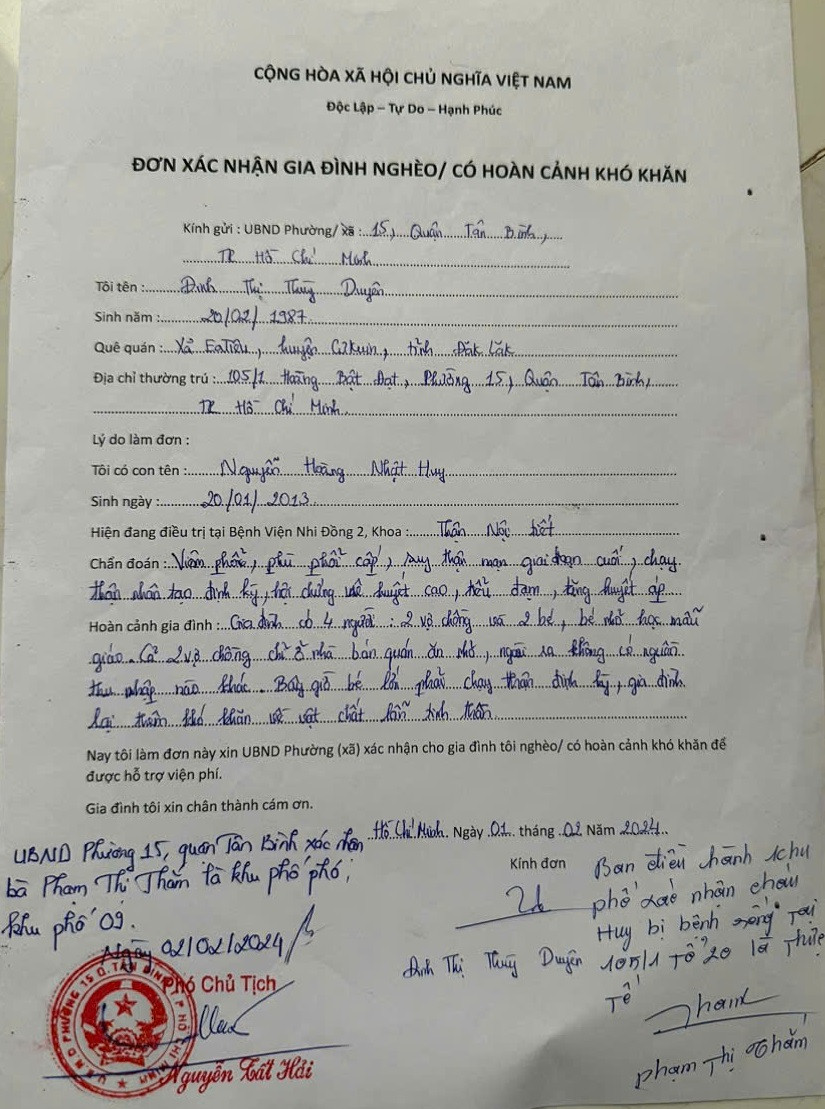 CỘNG HÒA XÃ HỘI CHỦ NGHĨA VIỆT NAM
Độc Lập – Tự Do – Hạnh Phúc
ĐƠN XÁC NHẬN GIA ĐÌNH NGHÈO/ CÓ HOÀN CẢNH KHÓ KHĂN
Kính gửi : UBND Phường/ xã : 15, Quận Tân Bình,
TP Hồ Chí Minh
Tôi tên : Đinh Thị Thùy Duyên
Sinh năm : 20/02/1987
Quê quán : Xã EaTiêu, huyện CưKuin, tỉnh Đăk Lăk
Địa chỉ thường trú : 105/1 Hoàng Bật Đạt, Phường 15, Quận Tân Bình,
TP Hồ Chí Minh
Lý do làm đơn :
Tôi có con tên : Nguyễn Hoàng Nhật Huy
Sinh ngày : 20/01/2013
Hiện đang điều trị tại Bệnh Viện Nhi Đồng 2, Khoa : Thận Nội tiết
Chẩn đoán : Viêm phổi, phù phổi cấp, suy thận mạn giai đoạn cuối, chạy
thận nhân tạo định kỳ, hội chứng urê huyết cao, tiểu đạm, tăng huyết áp
Hoàn cảnh gia đình : Gia đình có 4 người : 2 vợ chồng và 2 bé, bé nhỏ học mẫu
giáo. Cả 2 vợ chồng chỉ ở nhà bán quán ăn nhỏ, ngoài ra không có nguồn
thu nhập nào khác. Bây giờ bé lớn phải chạy thận định kỳ, gia đình
lại thêm khó khăn về vật chất lẫn tinh thần.
Nay tôi làm đơn này xin UBND Phường (xã) xác nhận cho gia đình tôi nghèo/ có hoàn cảnh khó khăn để
được hỗ trợ viện phí.
Gia đình tôi xin chân thành cám ơn.
Hồ Chí Minh. Ngày 01 tháng 02 Năm 2024
Kính đơn
Đinh Thị Thùy Duyên
UBND Phường 15, quận Tân Bình xác nhận
bà Phạm Thị Thắm là khu phố phó,
khu phố 09.
Ngày 02/02/2024
Phó Chủ Tịch
Nguyễn Tất Hải
U.B.N.D PHƯỜNG 15 Q. TÂN BÌNH T.P HỒ CHÍ MINH
Ban điều hành khu
phố xác nhận cháu
Huy bị bệnh sống tại
105/1 Tổ 20 là thực
Tế
Tham
Phạm Thị Thắm